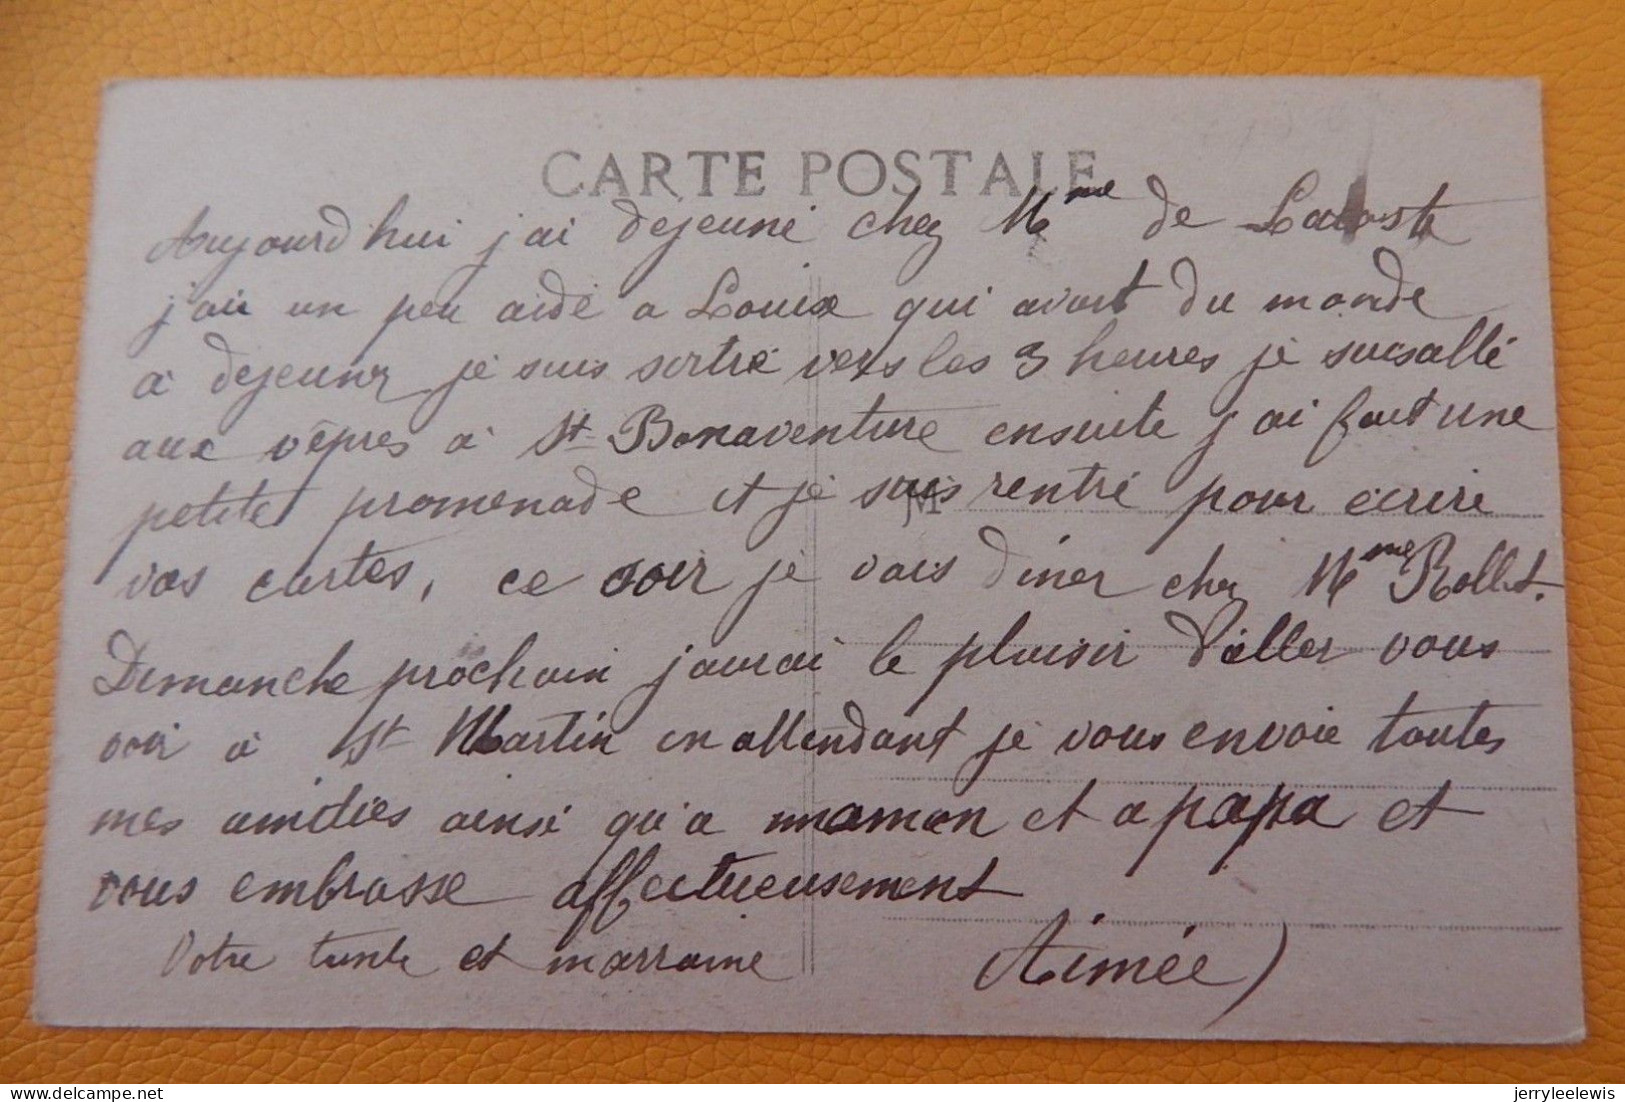 CARTE POSTALE
Aujourdhui j'ai dejeuné chez Mme de Lacoste
j'ai un peu aidé a Louise qui avait du monde
a dejeuner je suis sortie vers les 3 heures je suis allé
aux vêpres à St Bonaventure ensuite j'ai fait une
petite promenade et je suis rentré pour écrire
vos cartes, ce soir je vais diner chez Mme Rollet.
Dimanche prochain j'aurai le plaisir d'aller vous
voir à St Martin en attendant je vous envoie toutes
mes amitiés ainsi qu'a maman et a papa et
vous embrasse affectueusement
Votre tante et marraine Aimée
delcampe.net
jerryleelewis